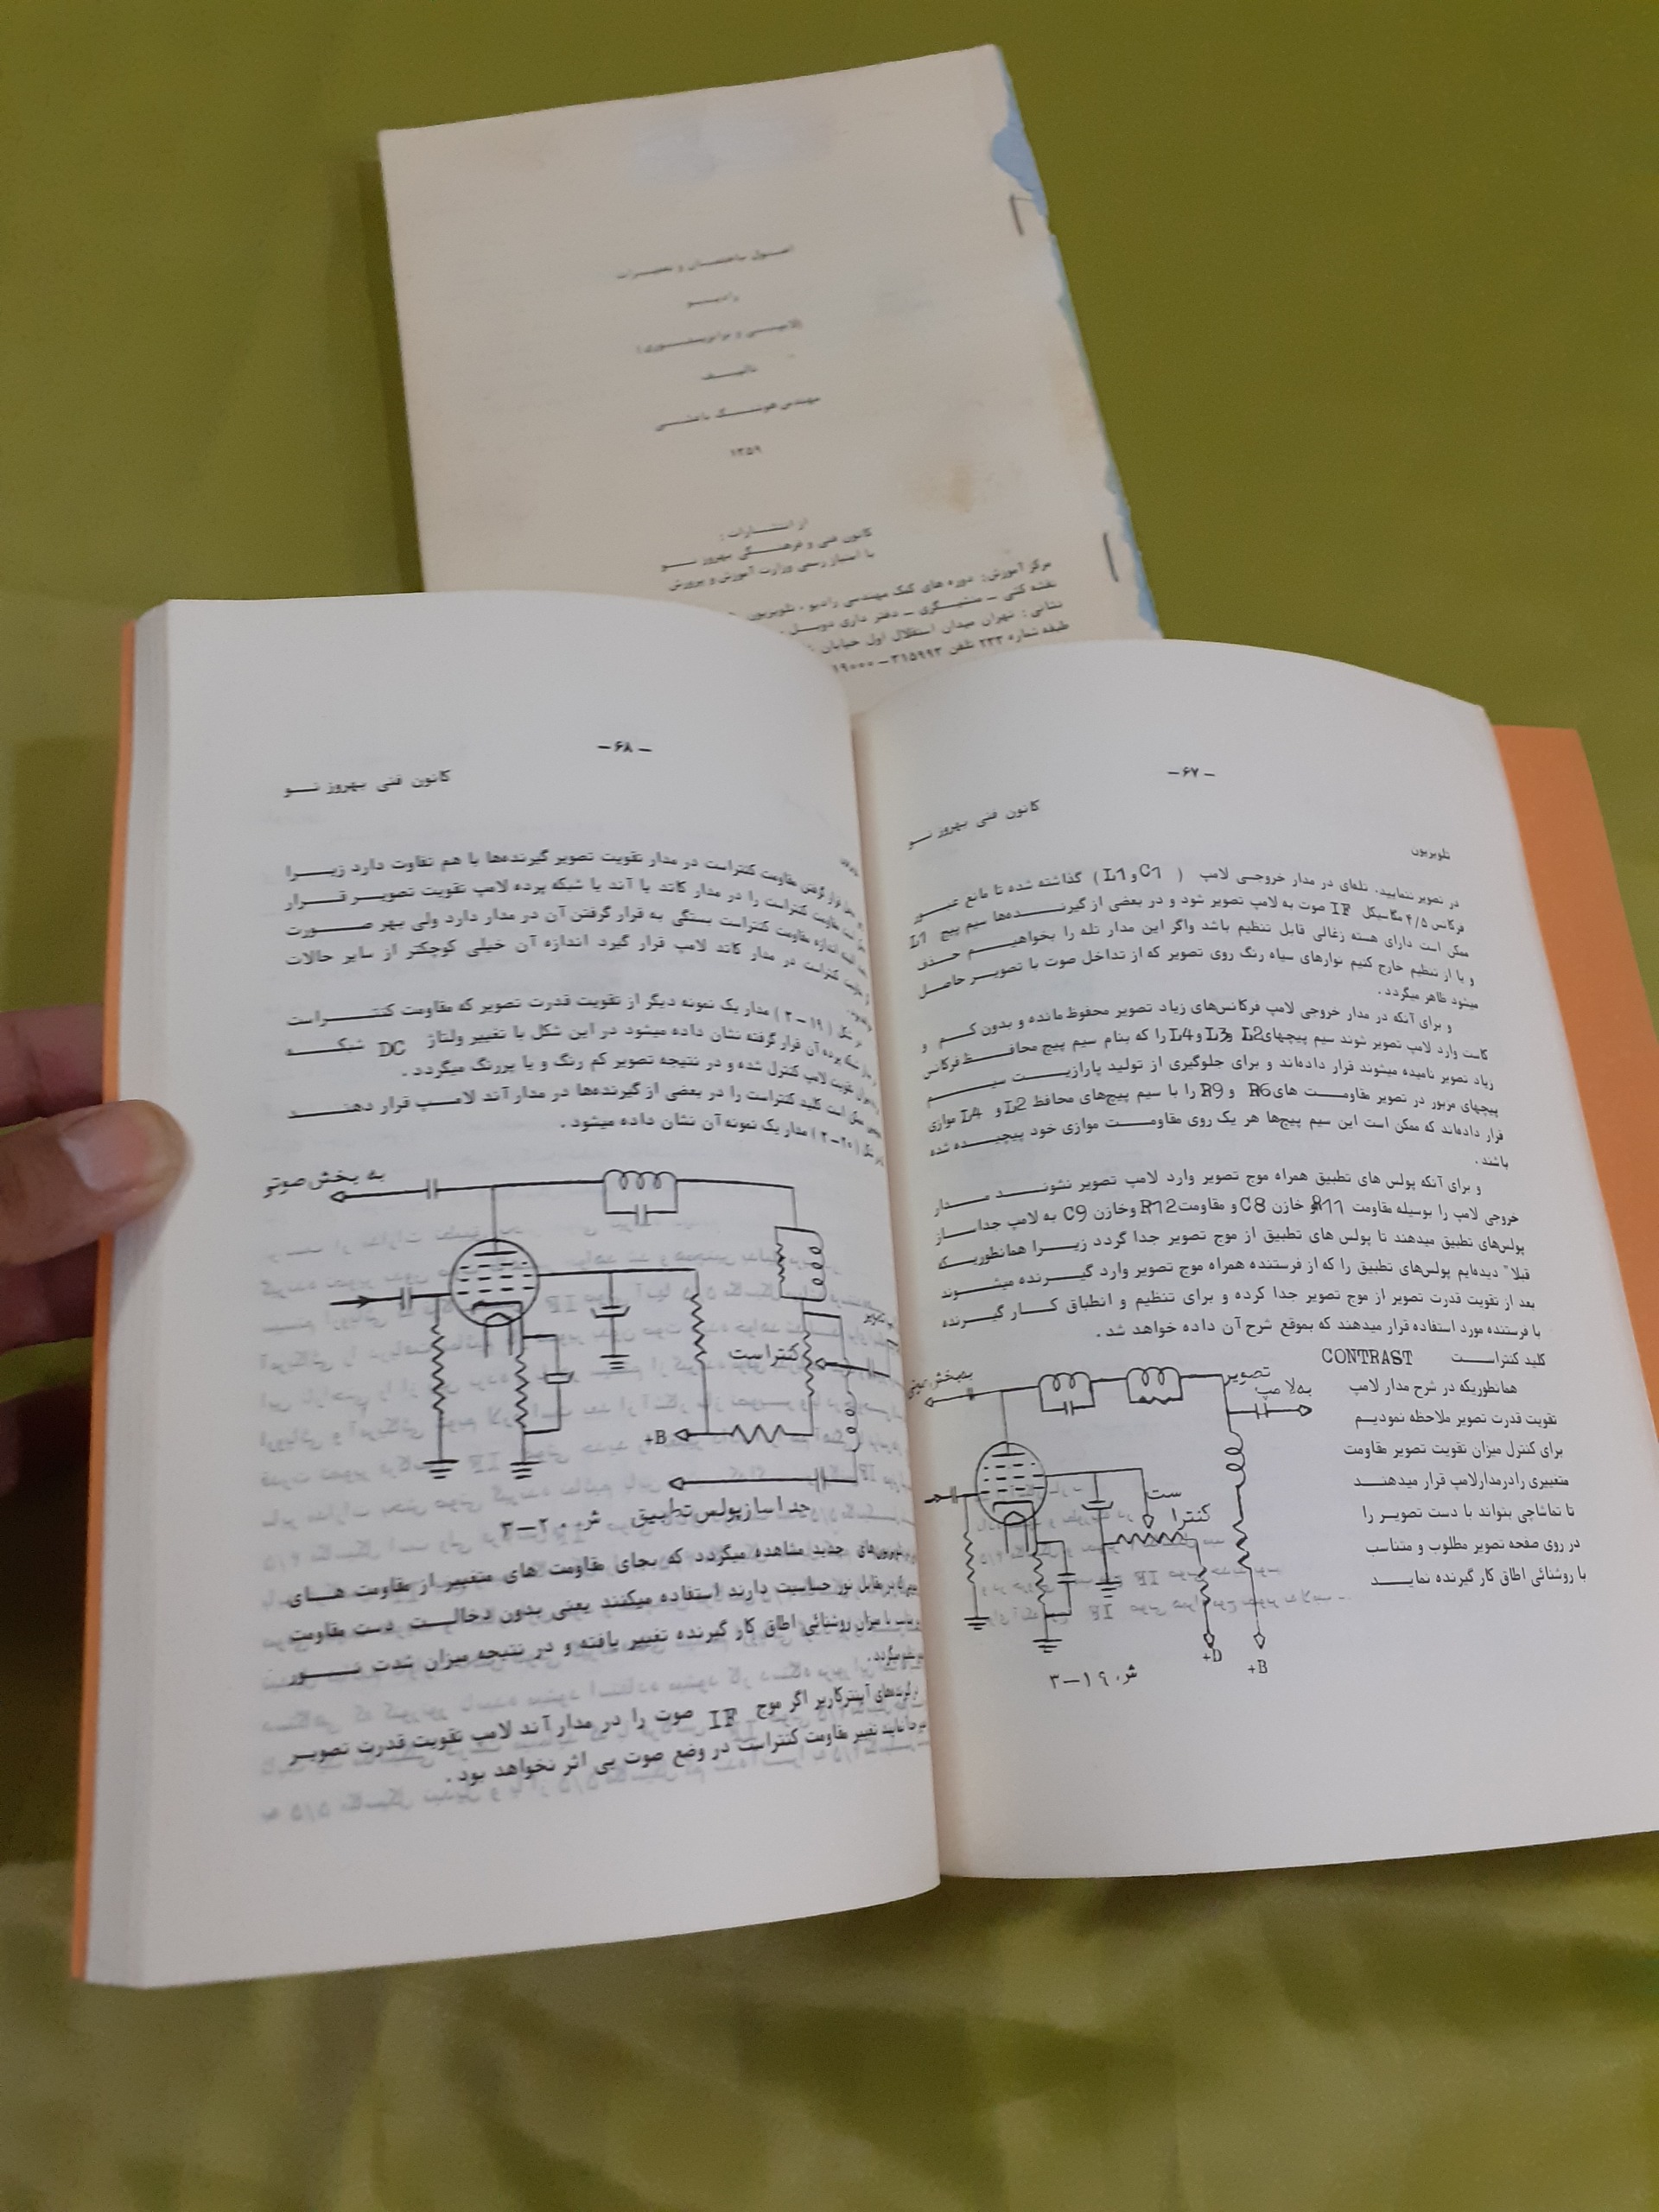 اصول ساختمان و تعمیرات
رادیو
(لامپی و ترانزیستوری)
تالیف
مهندس هوشنگ
۱۳۵۹
از انتشارات :
کانون فنی و فرهنگی بهروز نو
با امتیاز رسمی وزارت آموزش و پرورش
مرکز آموزش: دوره های کمک مهندسی رادیو ، تلویزیون
نقشه کشی – منشیگری – دفتر داری دوبل
نشانی : تهران میدان استقلال اول خیابان
طبقه شماره ۲۳۳ تلفن ۳۱۵۹۹۳ – ۱۹۰۰۰
– ۶۷ –
کانون فنی بهروز نو
تلویزیون
در تصویر ننمایید. تله‌ای در مدار خروجی لامپ ( L1 و C1 ) گذاشته شده تا مانع عبور
فرکانس ۴/۵ مگاسیکل IF صوت به لامپ تصویر شود و در بعضی از گیرنده‌ها سیم پیچ L1
ممکن است دارای هسته زغالی قابل تنظیم باشد واگر این مدار تله را بخواهیم حذف
و یا از تنظیم خارج کنیم نوارهای سیاه رنگ روی تصویر که از تداخل صوت با تصویر حاصل
میشود ظاهر میگردد .
و برای آنکه در مدار خروجی لامپ فرکانس‌های زیاد تصویر محفوظ مانده و بدون کم و
کاست وارد لامپ تصویر شوند سیم پیچهای L2 و L3 و L4 را که بنام سیم پیچ محافظ فرکانس
زیاد تصویر نامیده میشوند قرار داده‌اند و برای جلوگیری از تولید پارازیت سیم
پیچهای مزبور در تصویر مقاومت های R6 و R9 را با سیم پیچ‌های محافظ L2 و L4 موازی
قرار داده‌اند که ممکن است این سیم پیچ‌ها هر یک روی مقاومت موازی خود پیچیده شده
باشند .
و برای آنکه پولس های تطبیق همراه موج تصویر وارد لامپ تصویر نشوند مدار
خروجی لامپ را بوسیله مقاومت R11 و خازن C8 و مقاومت R12 وخازن C9 به لامپ جداساز
پولس‌های تطبیق میدهند تا پولس های تطبیق از موج تصویر جدا گردد زیرا همانطوریکه
قبلا" دیده‌ایم پولس‌های تطبیق را که از فرستنده همراه موج تصویر وارد گیرنده میشوند
بعد از تقویت قدرت تصویر از موج تصویر جدا کرده و برای تنظیم و انطباق کار گیرنده
با فرستنده مورد استفاده قرار میدهند که بموقع شرح آن داده خواهد شد .
کلید کنتراست CONTRAST
همانطوریکه در شرح مدار لامپ
تقویت قدرت تصویر ملاحظه نمودیم
برای کنترل میزان تقویت تصویر مقاومت
متغییری رادرمدارلامپ قرار میدهند
تا تماشاچی بتواند با دست تصویر را
در روی صفحه تصویر مطلوب و متناسب
با روشنائی اطاق کار گیرنده نماید
به‌بخش صوتی
تصویر
به‌لامپ
ست
کنترا
+D
+B
ش. ۱۹–۳
– ۶۸ –
کانون فنی بهروز نو
قرار گرفتن مقاومت کنتراست در مدار تقویت تصویر گیرنده‌ها با هم تفاوت دارد زیرا
است مقاومت کنتراست را در مدار کاتد یا آند یا شبکه پرده لامپ تقویت تصویر قرار
اندازه مقاومت کنتراست بستگی به قرار گرفتن آن در مدار دارد ولی بهر صورت
کنتراست در مدار کاتد لامپ قرار گیرد اندازه آن خیلی کوچکتر از سایر حالات
شکل ( ۱۹–۳ ) مدار یک نمونه دیگر از تقویت قدرت تصویر که مقاومت کنتراست
شبکه پرده آن قرار گرفته نشان داده میشود در این شکل با تغییر ولتاژ DC شبکه
تقویت لامپ کنترل شده و در نتیجه تصویر کم رنگ و یا پررنگ میگردد .
ممکن است کلید کنتراست را در بعضی از گیرنده‌ها در مدار آند لامپ قرار دهند
شکل ( ۲۰–۳ ) مدار یک نمونه آن نشان داده میشود .
به بخش صوتی
تصویر
کنتراست
+B
جداسازپولس تطبیق
ش. ۲۰–۳
تلویزیون‌های جدید مشاهده میگردد که بجای مقاومت های متغییر از مقاومت های
در مقابل نور حساسیت دارند استفاده میکنند یعنی بدون دخالت دست مقاومت
با میزان روشنائی اطاق کار گیرنده تغییر یافته و در نتیجه میزان شدت نور
میگردد .
گیرنده‌های اینترکاریر اگر موج IF صوت را در مدار آند لامپ تقویت قدرت تصویر
جدا نمایند تغییر مقاومت کنتراست در وضع صوت بی اثر نخواهد بود .